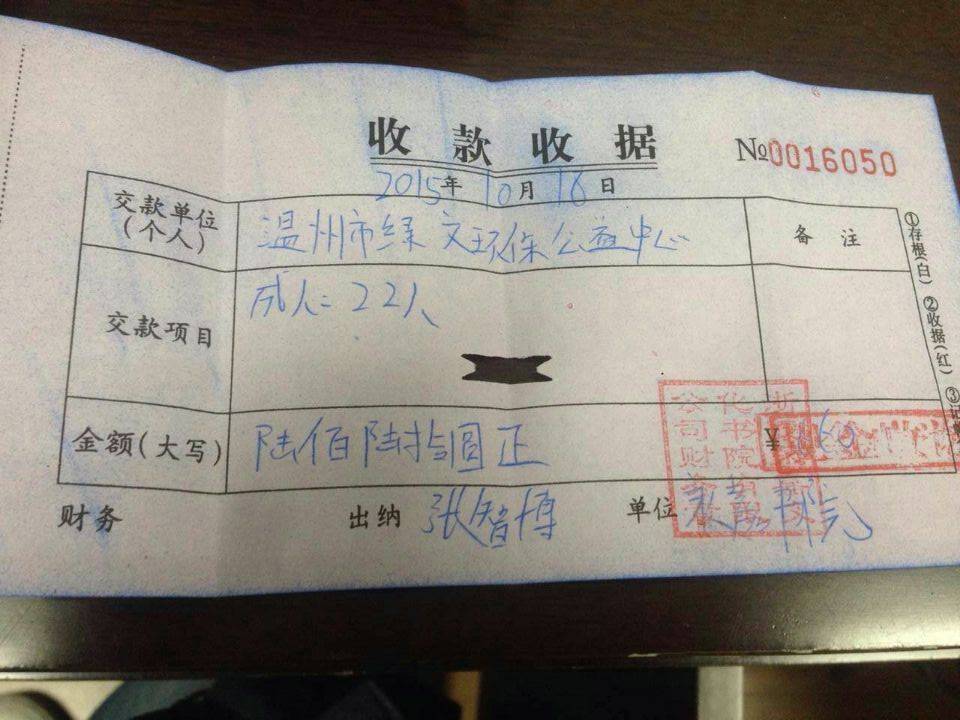 收款收据
№0016050
2015年10月16日
交款单位(个人) 温州市绿文环保公益中心 备注
交款项目 成人:22人
金额(大写) 陆佰陆拾圆正 ¥660
财务 出纳 张智博 单位
①存根(白) ②收据(红) ③记